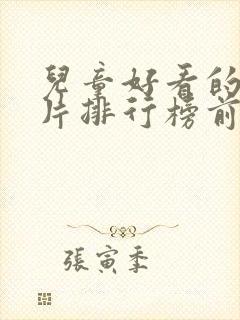 兒童好看的
片排行榜前
張寅季